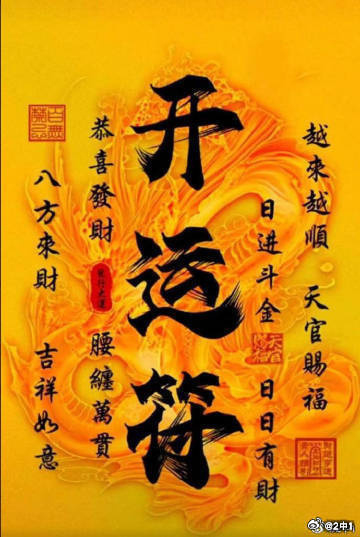 越來越順 天官賜福
日进斗金 日日有財
开运符
恭喜發財 腰纏萬貫
八方來財 吉祥如意
天官賜福
百無禁忌
@2中1